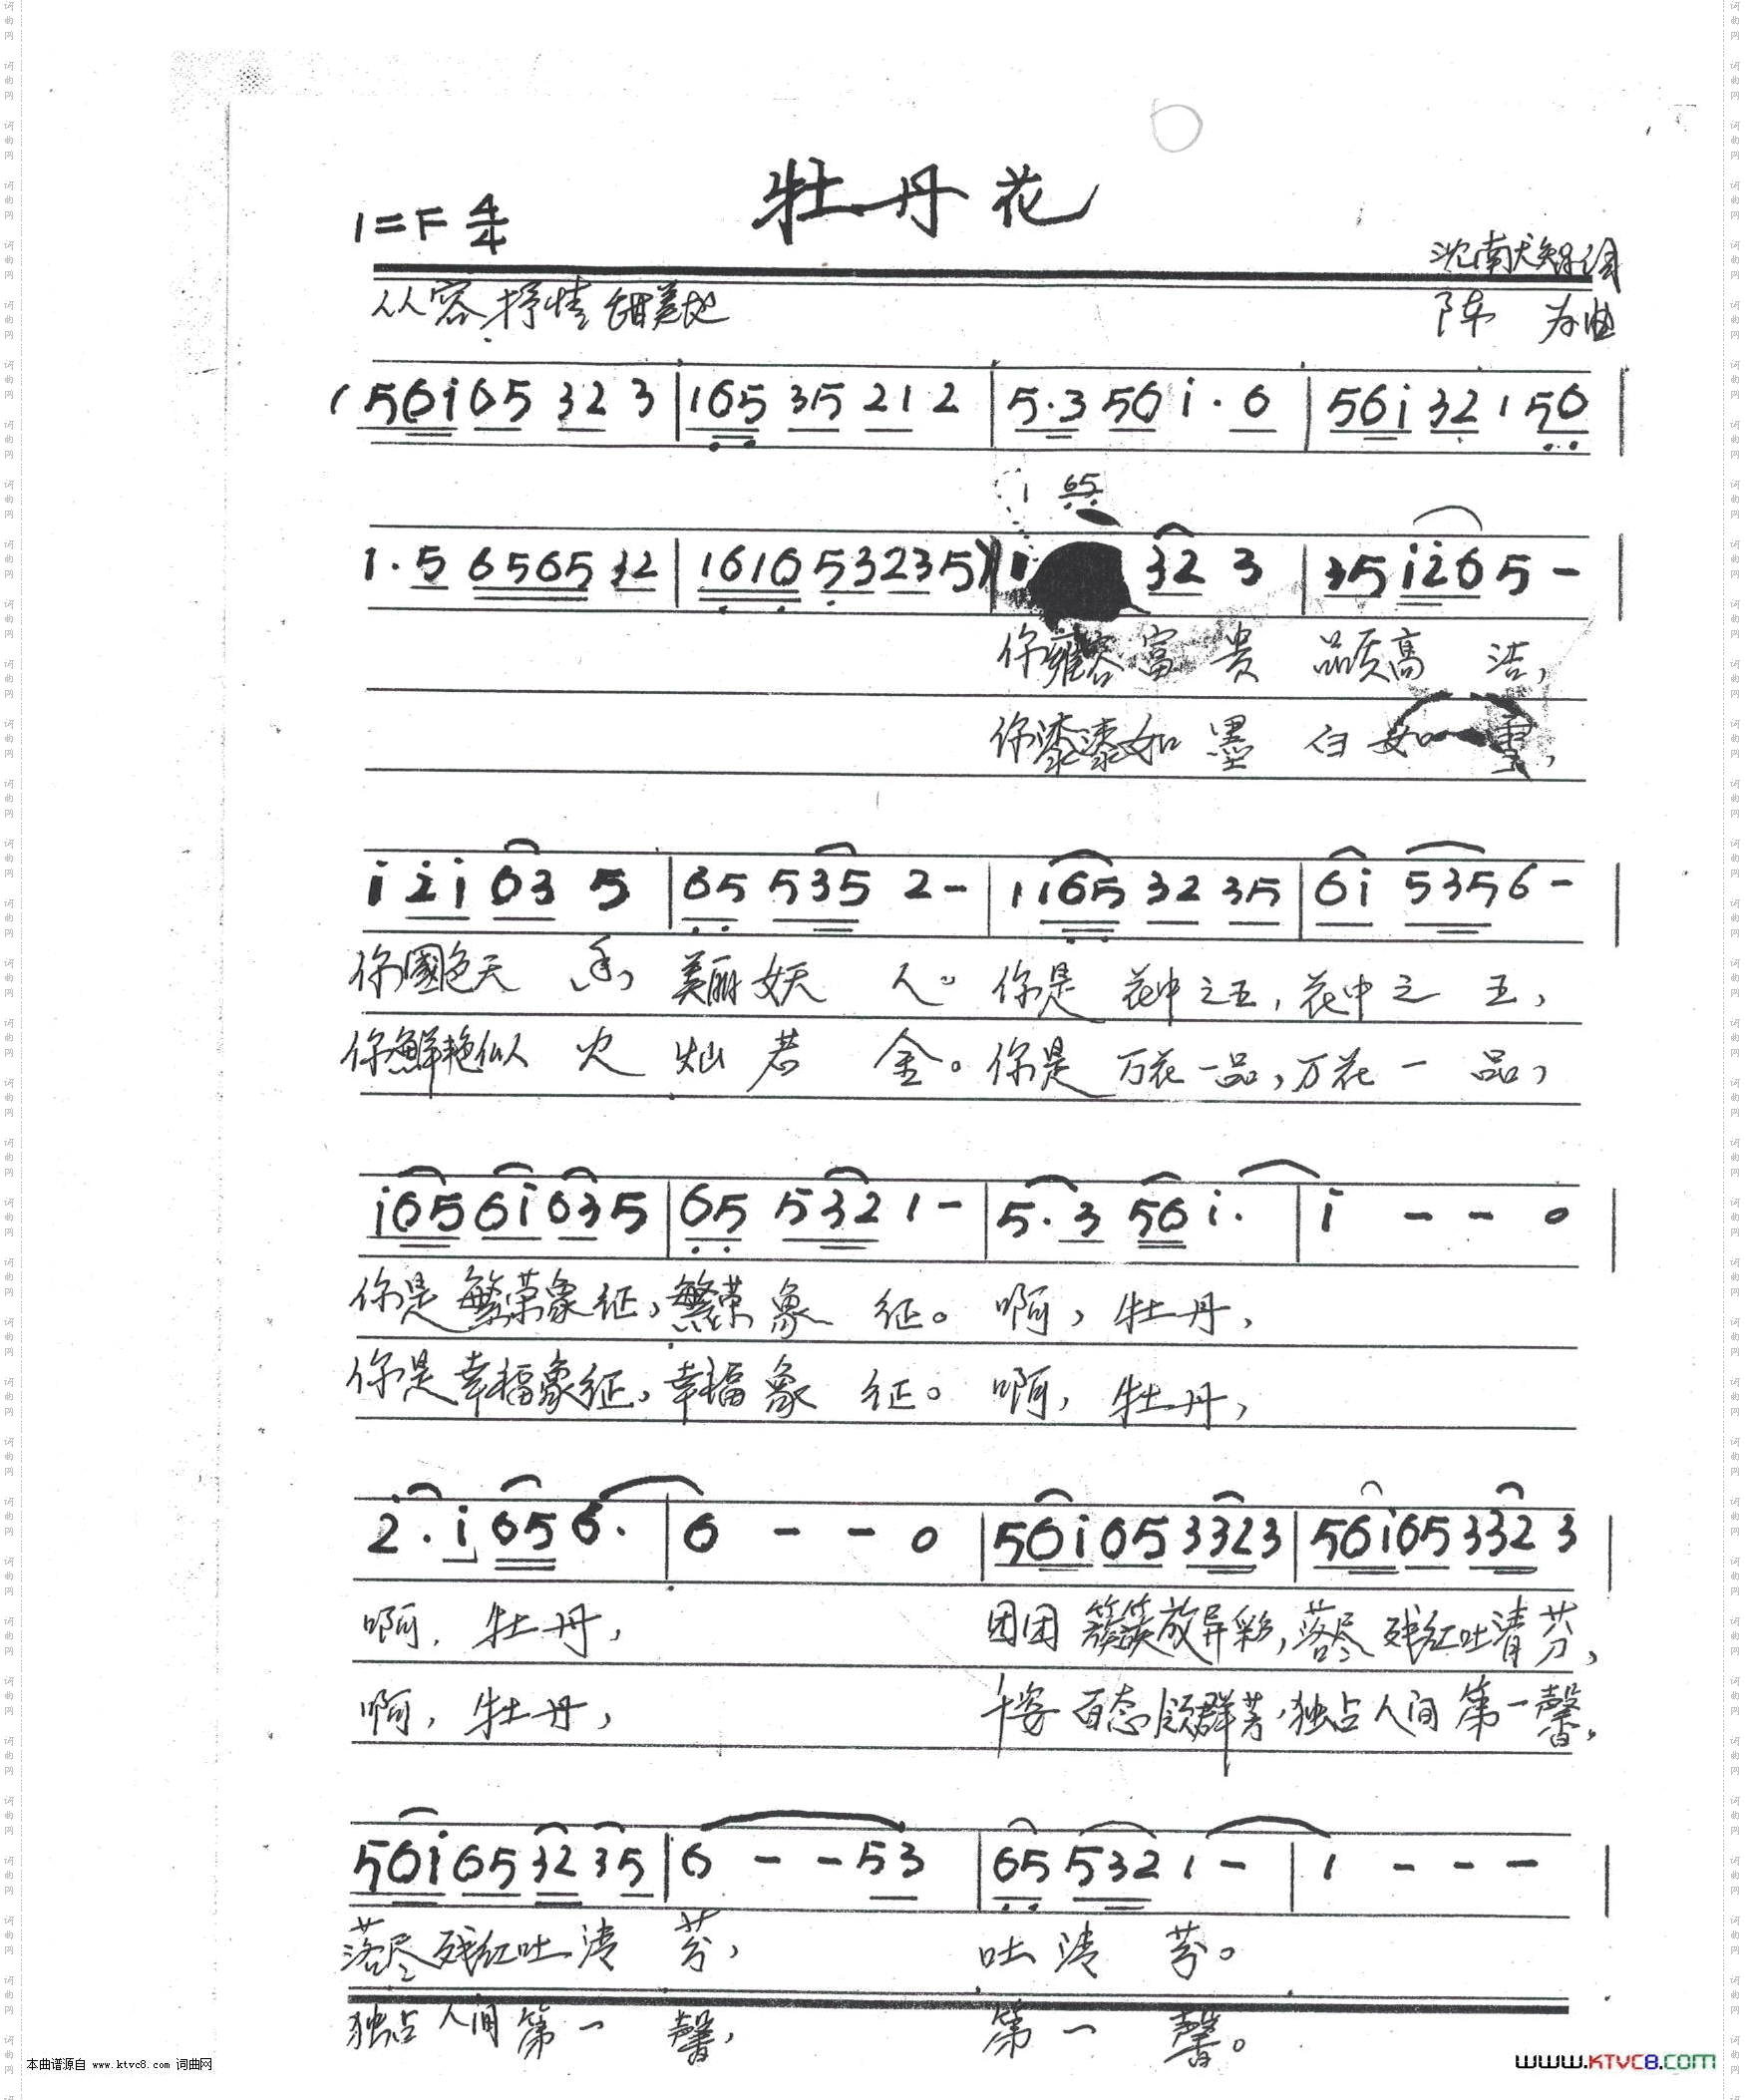 牡丹花
1=F 4/4
从容抒情甜美地
陈 为曲
( 5 6 i 6 5 3 2 3 | 1 6 5 3 5 2 1 2 | 5 · 3 5 6 i · 6 | 5 6 i 3 2 1 5 6 |
1 6 5
1 · 5 6 5 6 5 3 2 | 1 6 1 6 5 3 2 3 5 ) i 3 2 3 | 3 5 i 2 6 5 - |
你雍容富贵 品质高 洁,
你漆漆如墨 白如 雪,
i 2 i 6 3 5 | 6 5 5 3 5 2 - | 1 1 6 5 3 2 3 5 | 6 i 5 3 5 6 - |
你國色天 香, 美丽妖 人。你是 花中之王, 花中之 王,
你鲜艳似 火 灿若 金。你是 万花一品, 万花一 品,
i 6 5 6 i 6 3 5 | 6 5 5 3 2 1 - | 5 · 3 5 6 i · | i - - 0 |
你是繁荣象征, 繁荣象 征。 啊, 牡丹,
你是幸福象征, 幸福象 征。 啊, 牡丹,
2 · i 6 5 6 · | 6 - - 0 | 5 6 i 6 5 3 3 2 3 | 5 6 i 6 5 3 3 2 3 |
啊, 牡丹, 团团簇簇放异彩, 落尽残红吐清芬,
啊, 牡丹, 千姿百态领群芳, 独占人间第一馨,
5 6 i 6 5 3 2 3 5 | 6 - - 5 3 | 6 5 5 3 2 1 - | 1 - - - |
落尽残红吐清 芬, 吐清 芬。
独占人间第一 馨, 第一 馨。
本曲谱源自 www.ktvc8.com 词曲网
WWW.KTVC8.COM